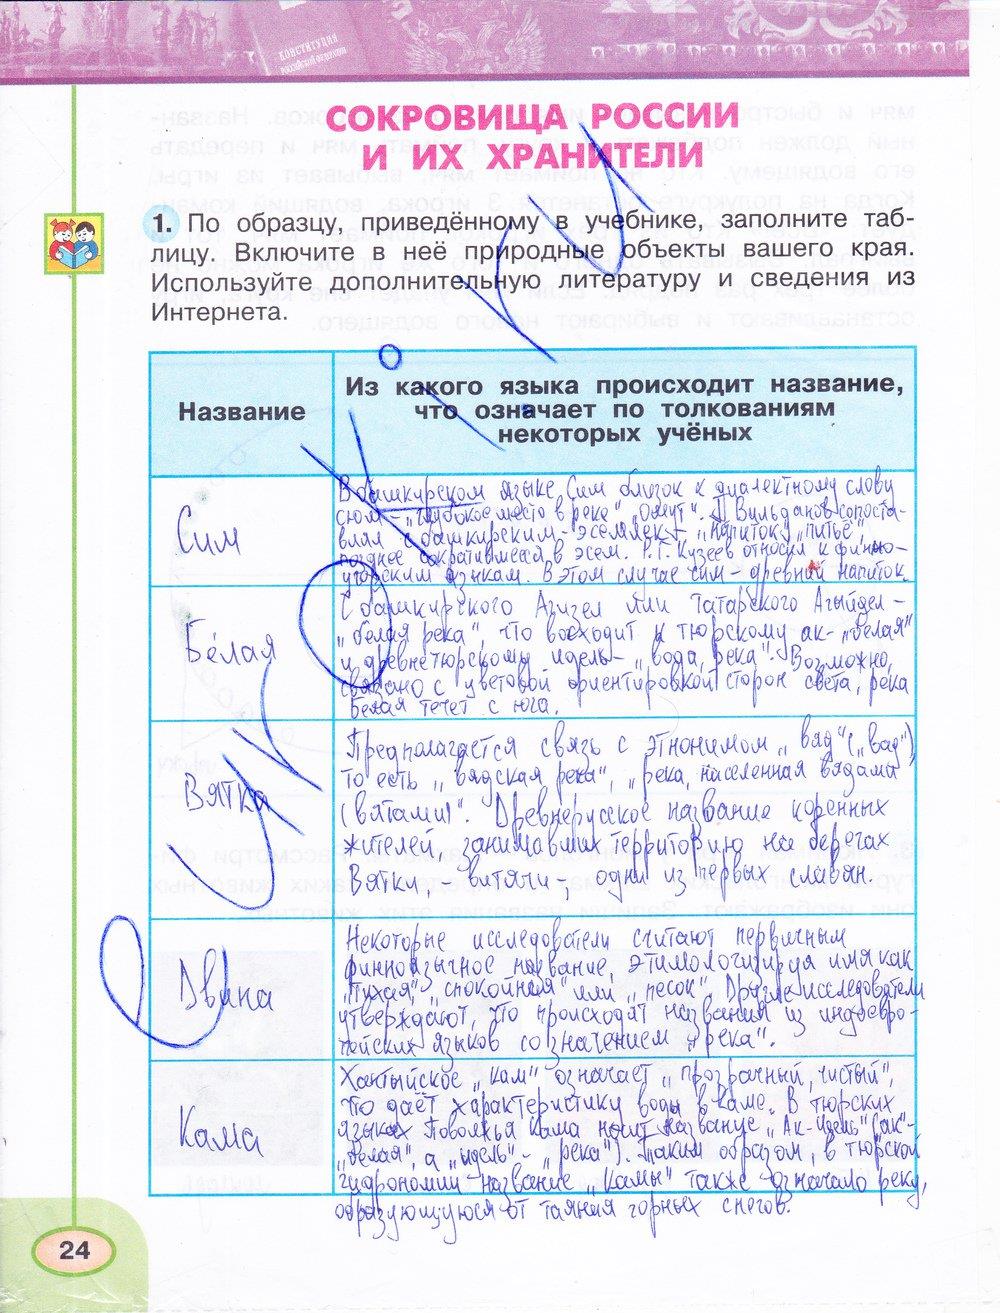 КОНСТИТУЦИЯ
СОКРОВИЩА РОССИИ
И ИХ ХРАНИТЕЛИ
1. По образцу, приведённому в учебнике, заполните таб-
лицу. Включите в неё природные объекты вашего края.
Используйте дополнительную литературу и сведения из
Интернета.
Название
Из какого языка происходит название,
что означает по толкованиям
некоторых учёных
Сим
В башкирском языке Сим близок к диалектному слову
сюм - "глубокое место в реке" "омут". Вильданов сопоста-
влял с башкирским - эсемлек - "напиток", "питье",
позднее сократившееся в эсем. Р.Г. Кузеев относил к финно-
угорским языкам. В этом случае сим - древний напиток.
Белая
С башкирского Агизел или татарского Агыйдел -
"белая река", что восходит к тюрскому ак - "белая"
и древнетюрскому идель - "вода, река". Возможно,
связано с цветовой ориентировкой сторон света, река
Белая течет с юга.
Вятка
Предполагается связь с этнонимом "вяд" ("вад"),
то есть "вядская река", "река, населенная вядами
(вятами)". Древнерусское название коренных
жителей, занимавших территорию на берегах
Вятки, - витячи -, одни из первых славян.
Двина
Некоторые исследователи считают первичным
финноязычное название, этимологизируя имя как
"тихая", "спокойная" или "песок". Другие исследователи
утверждают, что происходят названия из индоевро-
пейских языков со значением "река".
Кама
Хантыйское "кам" означает "прозрачный, чистый",
что даёт характеристику воды в Каме. В тюрских
языках Поволжья Кама носит название "Ак-Идель" (ак -
"белая", а "идель" - "река"). Таким образом, в тюрской
гидрономии - название "Камы" также означало реку,
образующуюся от таяния горных снегов.
24